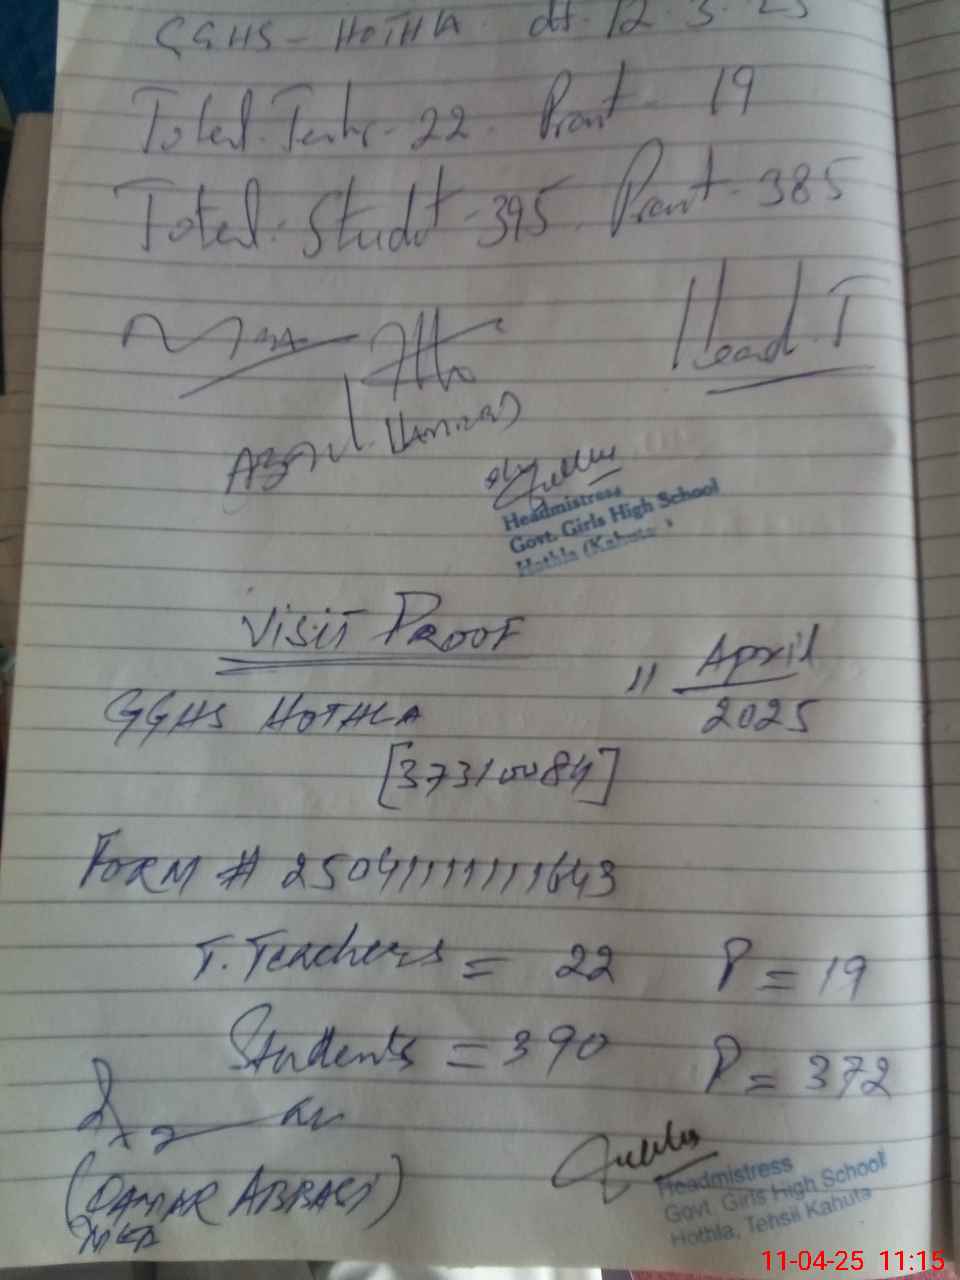 GGHS - HOTHLA. dt. 12.3.25
Total. Teachr - 22. Prant - 19
Total. Studt - 395. Prant - 385
Head. T
Headmistress
Govt. Girls High School
Hothla (Kahuta)
VISIT PROOF
11 April
2025
GGHS HOTHLA
[37310084]
FORM # 25041111111643
T. Teachers = 22 P = 19
Students = 390 P = 372
(QAMAR ABBASI)
MEA
Headmistress
Govt Girls High School
Hothla, Tehsil Kahuta
11-04-25 11:15